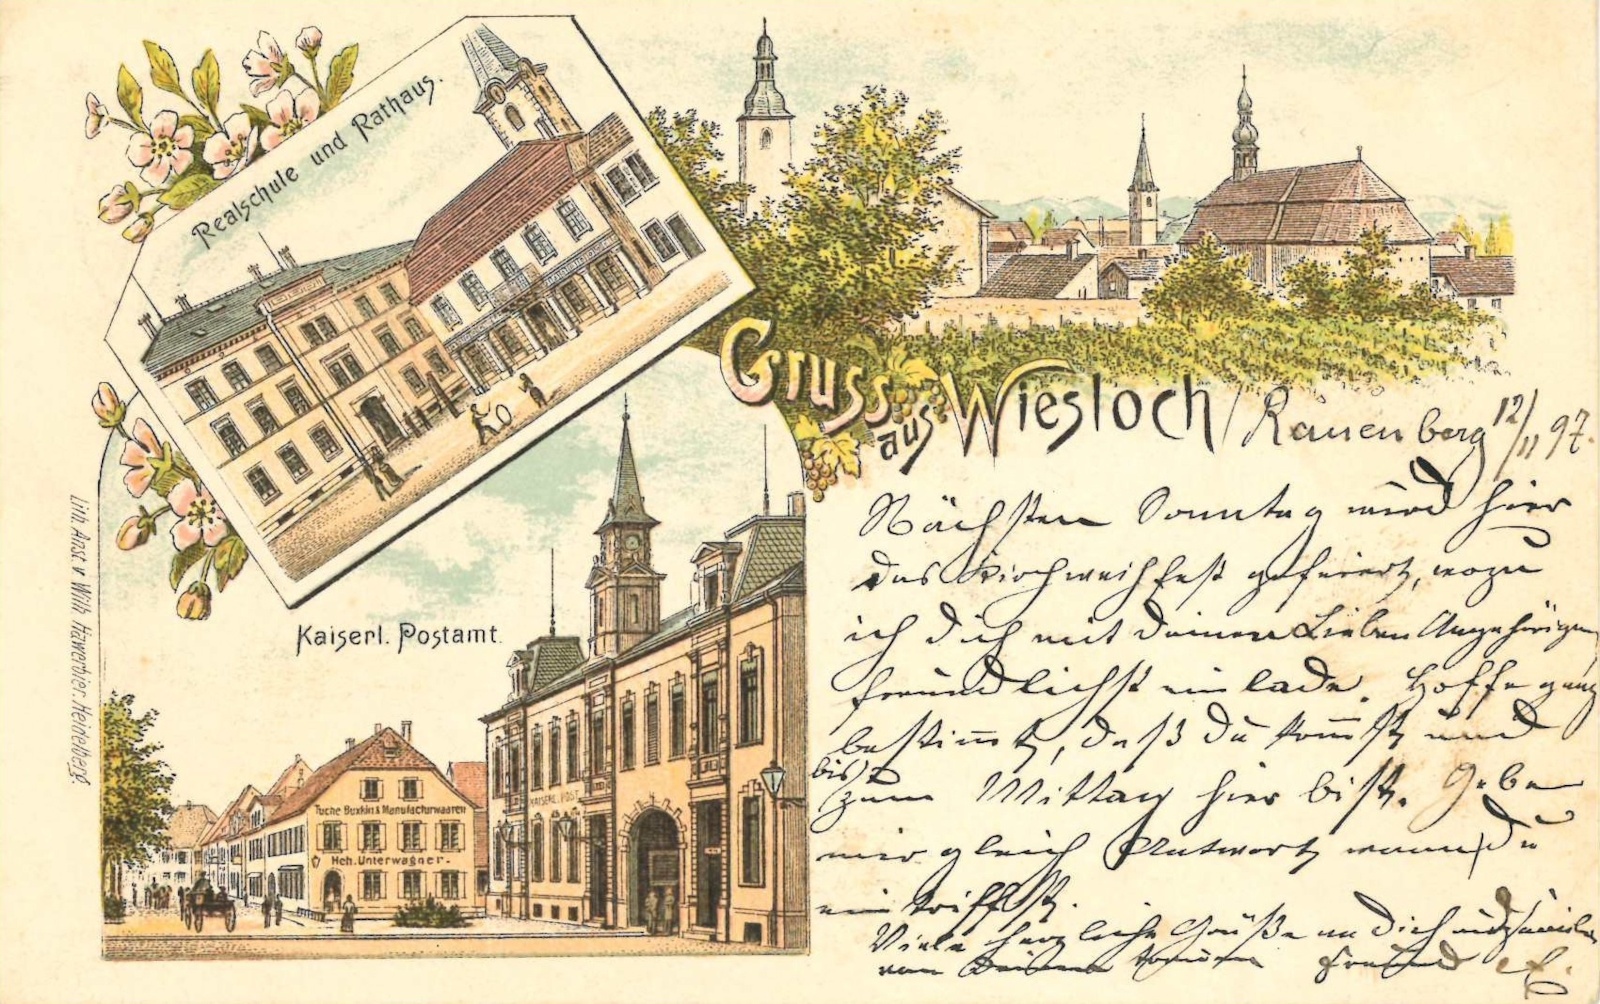 Realschule und Rathaus.
Gruss aus Wiesloch
Rauenberg 12/11 97.
Nächsten Sonntag wird hier
das Kirchweihfest gefeiert, wozu
ich dich mit deinen Lieben Angehörigen
freundlichst einlade. Hoffe ganz
bestimmt, daß du kommst und
bis
zum Mittag hier bist. Gebe
mir gleich Antwort wann du
eintriffst.
Viele herzliche Grüße an Dich und Familie
von Deinem treuen Freund
Kaiserl. Postamt.
KAISERL. POST
Tuche Buxkin & Manufacturwaaren
Hch. Unterwagner.
Lith. Anst. v. Wilh. Hawerbier. Heidelberg.